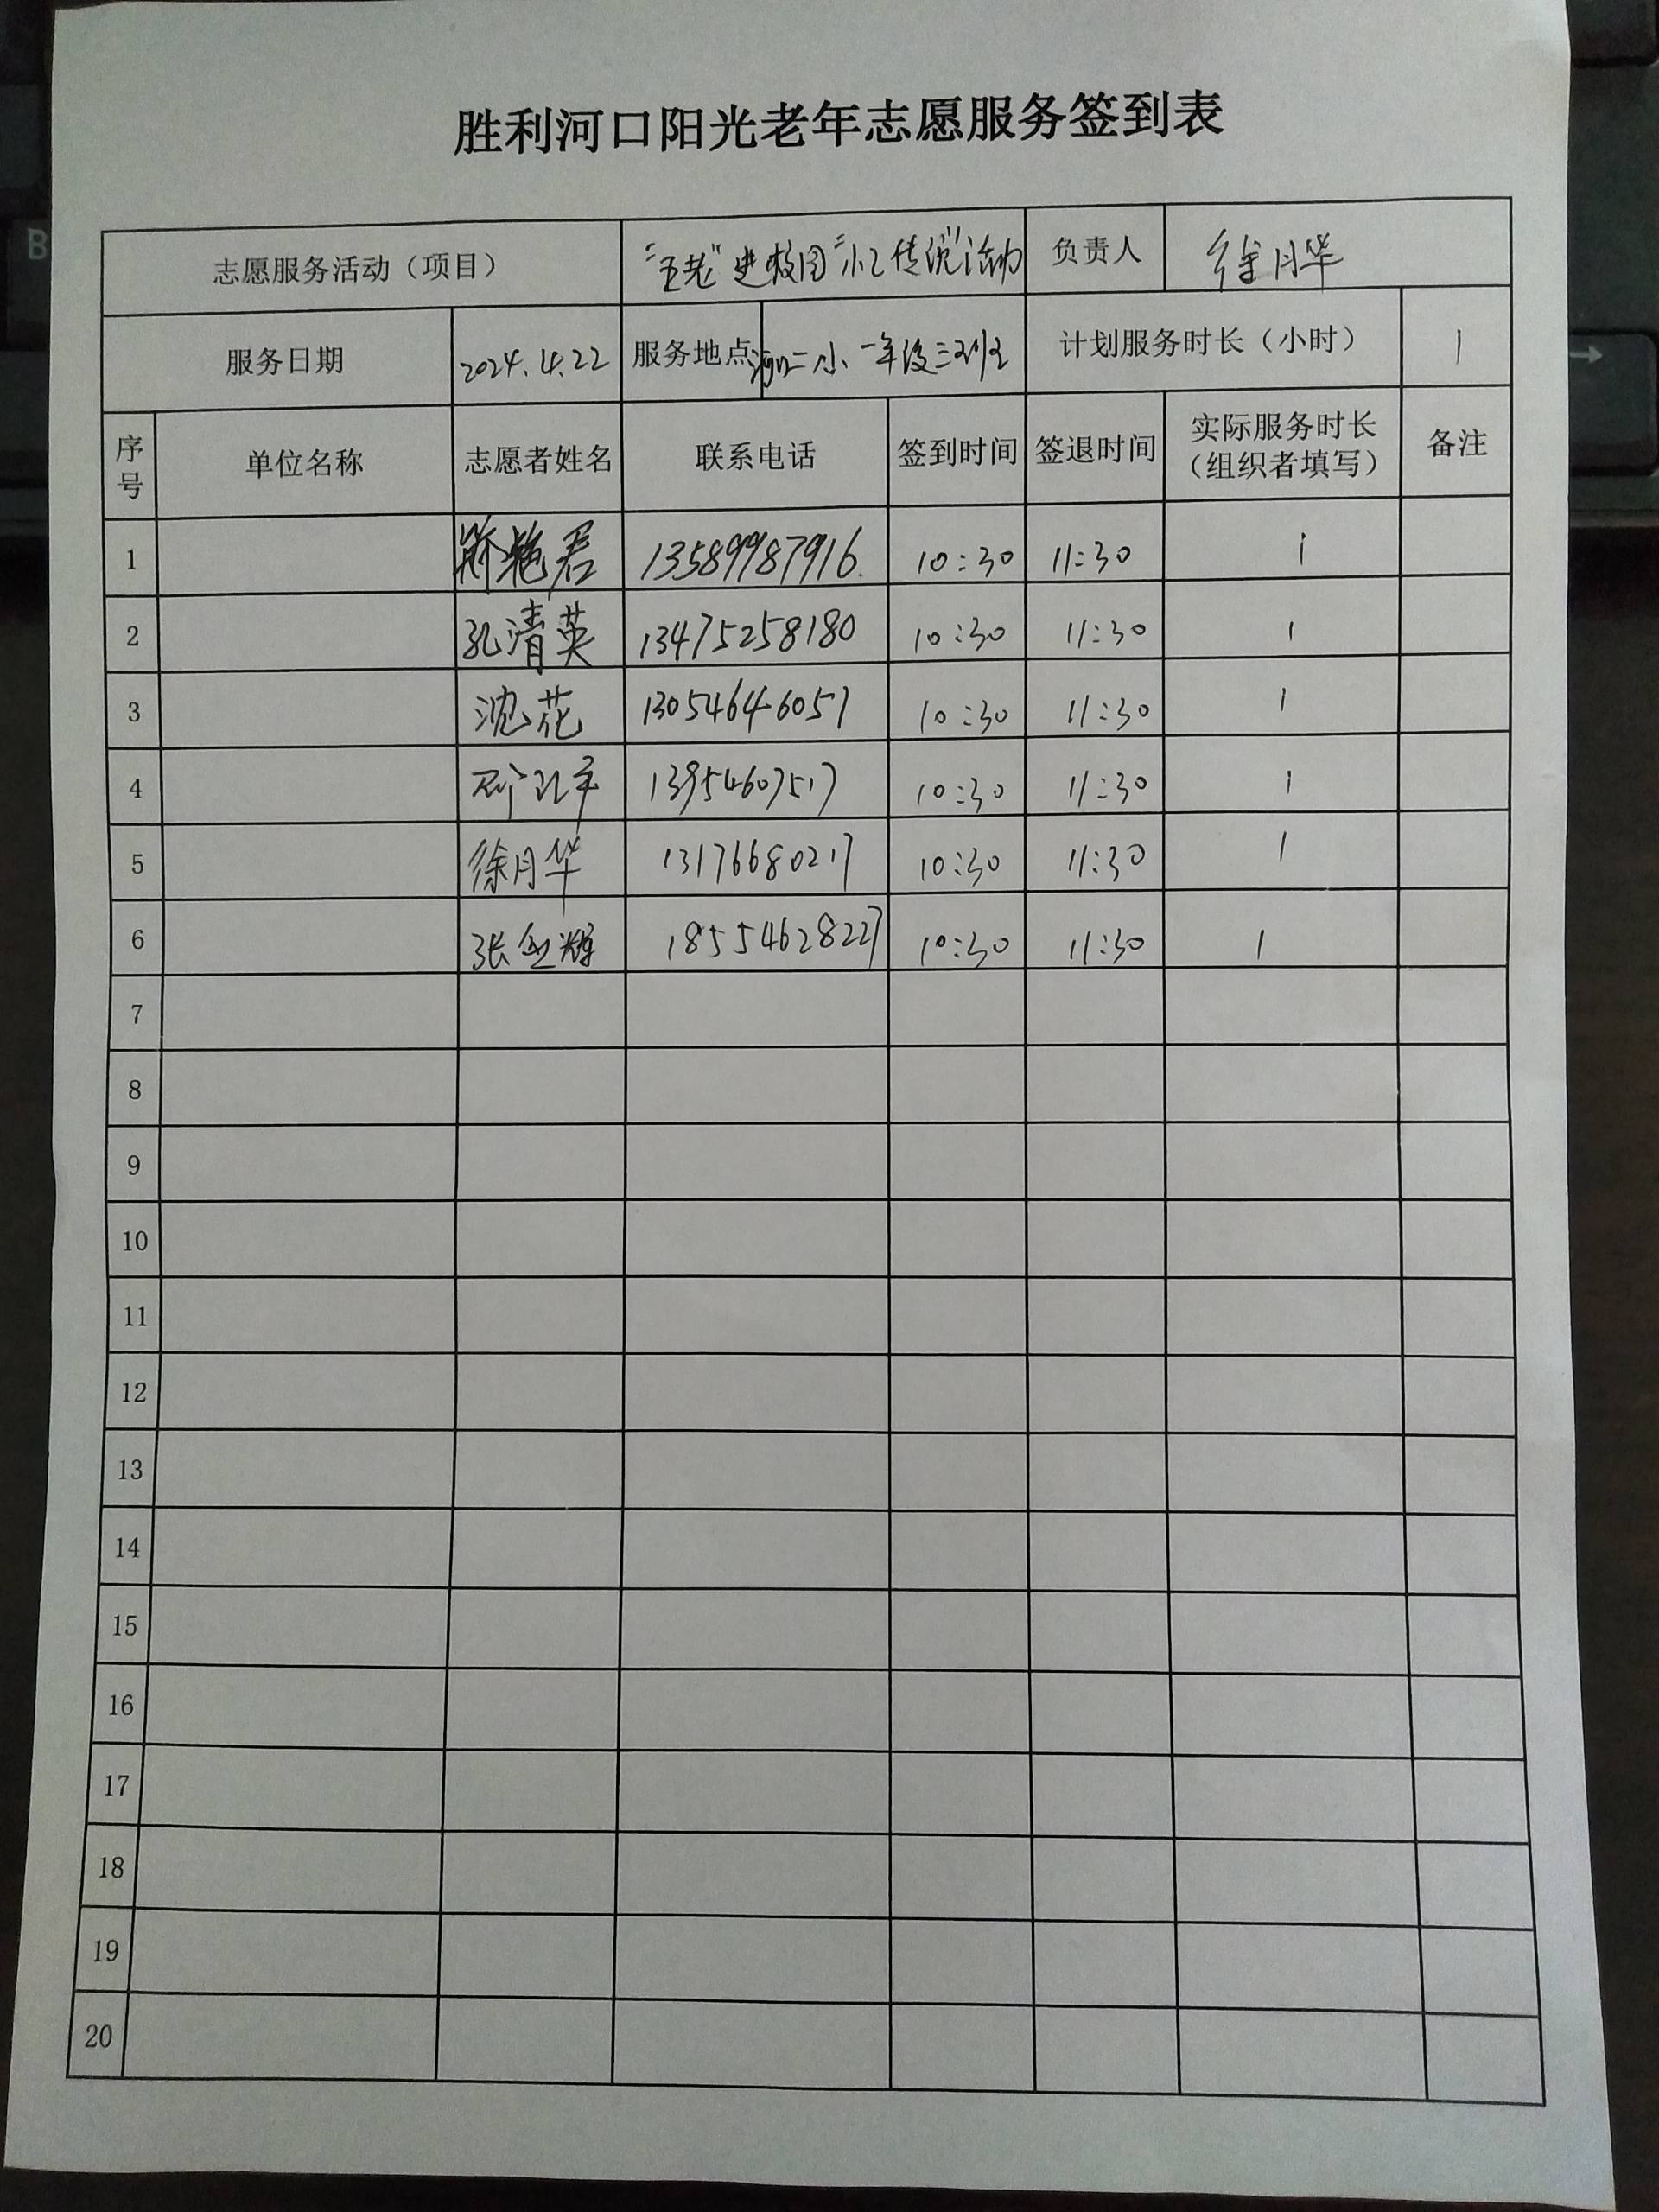 胜利河口阳光老年志愿服务签到表
志愿服务活动（项目） "五老"进校园 传统"活动 负责人 徐月华
服务日期 2024.4.22 服务地点 河口二小、一年级三班 计划服务时长（小时） 1
序号 单位名称 志愿者姓名 联系电话 签到时间 签退时间 实际服务时长（组织者填写） 备注
1 艳君 13589987916. 10:30 11:30 1
2 孔清英 13475258180 10:30 11:30 1
3 沈花 13054646051 10:30 11:30 1
4 13954607517 10:30 11:30 1
5 徐月华 13176680217 10:30 11:30 1
6 张 辉 18554628227 10:30 11:30 1
7
8
9
10
11
12
13
14
15
16
17
18
19
20
B
→